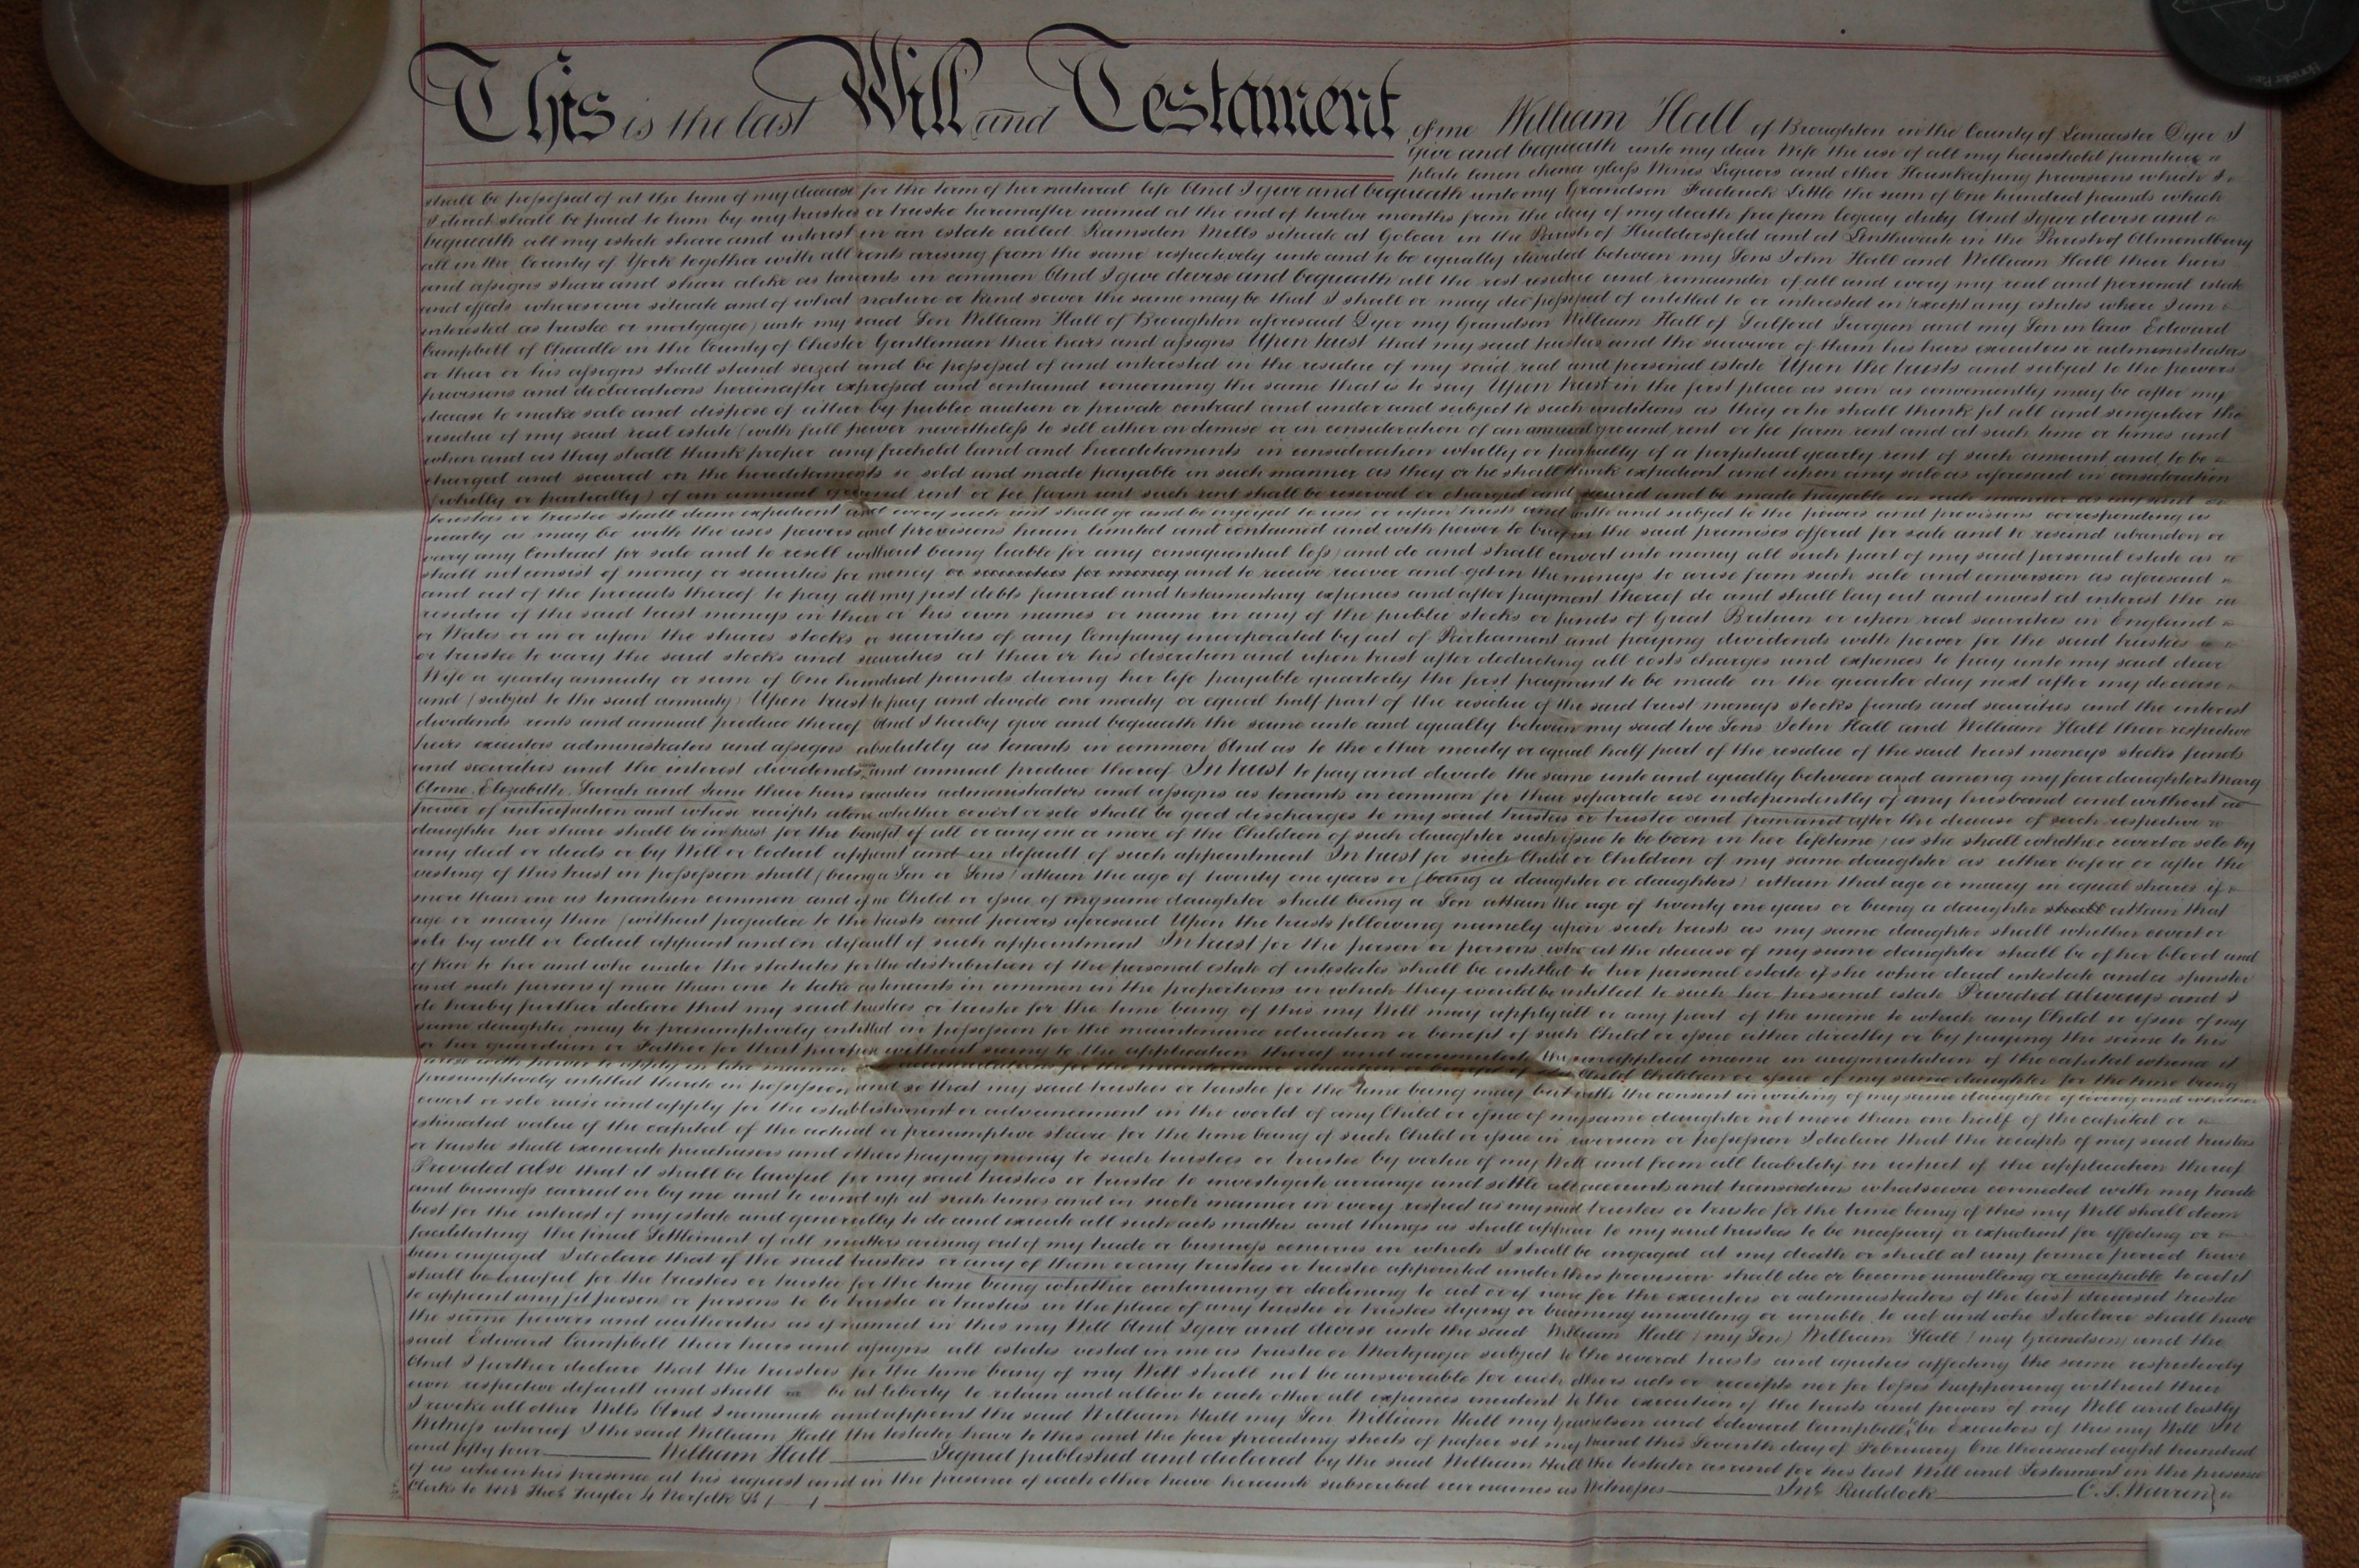 This is the last Will and Testament of me William Hall of Broughton in the County of Lancaster Dyer I
give and bequeath unto my dear Wife the use of all my household furniture
plate linen china glass Wines Liquors and other Housekeeping provisions which I
shall be possessed of at the time of my decease for the term of her natural life And I give and bequeath unto my Grandson Frederick Little the sum of One hundred pounds which
I direct shall be paid to him by my trustees or trustee hereinafter named at the end of twelve months from the day of my death free from legacy duty And I give devise and
bequeath all my estate share and interest in an estate called Ramsden Mills situate at Golcar in the Parish of Huddersfield and at Linthwaite in the Parish of Almondbury
all in the County of York together with all rents arising from the same respectively unto and to be equally divided between my Sons John Hall and William Hall their heirs
and assigns share and share alike as tenants in common And I give devise and bequeath all the rest residue and remainder of all and every my real and personal estate
and effects wheresoever situate and of what nature or kind soever the same may be that I shall or may die possessed of entitled to or interested in (except any estates where I am
interested as trustee or mortgagee) unto my said Son William Hall of Broughton aforesaid Dyer my Grandson William Hall of Salford Surgeon and my Son in law Edward
Campbell of Cheadle in the County of Chester Gentleman their heirs and assigns Upon trust that my said trustees and the survivor of them his heirs executors or administrators
or their or his assigns shall stand seized and be possessed of and interested in the residue of my said real and personal estate Upon the trusts and subject to the powers
provisions and declarations hereinafter expressed and contained concerning the same that is to say Upon trust in the first place as soon as conveniently may be after my
decease to make sale and dispose of either by public auction or private contract and under and subject to such conditions as they or he shall think fit all and singular the
residue of my said real estate (with full power nevertheless to sell either on demise or in consideration of an annual ground rent or fee farm rent and at such time or times and
when and as they shall think proper any freehold land and hereditaments in consideration wholly or partially of a perpetual yearly rent of such amount and to be
charged and secured on the hereditaments so sold and made payable in such manner as they or he shall think expedient and upon any sale as aforesaid in consideration
(wholly or partially) of an annual ground rent or fee farm rent such rent shall be reserved or charged and secured and be made payable in such manner as my said
trustees or trustee shall deem expedient and every such rent shall go and be enjoyed to uses or upon trusts and with and subject to the powers and provisions corresponding as
nearly as may be with the uses powers and provisions herein limited and contained and with power to buy in the said premises offered for sale and to rescind abandon or
vary any Contract for sale and to resell without being liable for any consequential loss) and do and shall convert into money all such part of my said personal estate as
shall not consist of money or securities for money or securities for money and to receive recover and get in the moneys to arise from such sale and conversion as aforesaid
and out of the proceeds thereof to pay all my just debts funeral and testamentary expences and after payment thereof do and shall lay out and invest at interest the
residue of the said trust moneys in their or his own names or name in any of the public stocks or funds of Great Britain or upon real securities in England
or Wales or in or upon the shares stocks or securities of any Company incorporated by act of Parliament and paying dividends with power for the said trustees
or trustee to vary the said stocks and securities at their or his discretion and upon trust after deducting all costs charges and expences to pay unto my said dear
Wife a yearly annuity or sum of One hundred pounds during her life payable quarterly the first payment to be made on the quarter day next after my decease
and (subject to the said annuity) Upon trust to pay and divide one moiety or equal half part of the residue of the said trust moneys stocks funds and securities and the interest
dividends rents and annual produce thereof And I hereby give and bequeath the same unto and equally between my said two Sons John Hall and William Hall their respective
heirs executors administrators and assigns absolutely as tenants in common And as to the other moiety or equal half part of the residue of the said trust moneys stocks funds
and securities and the interest dividends and annual produce thereof In trust to pay and divide the same unto and equally between and among my four daughters Mary
Anne, Elizabeth, Sarah and Jane their heirs executors administrators and assigns as tenants in common for their separate use independently of any husband and without
power of anticipation and whose receipts alone whether covert or sole shall be good discharges to my said trustees or trustee and from and after the decease of such respective
daughter her share shall be in trust for the benefit of all or any one or more of the Children of such daughter such issue to be born in her lifetime) as she shall whether covert or sole by
any deed or deeds or by Will or Codicil appoint and in default of such appointment In trust for such Child or Children of my same daughter as either before or after the
vesting of this trust in possession shall (being a Son or Sons) attain the age of twenty one years or (being a daughter or daughters) attain that age or marry in equal shares if
more than one as tenants in common and if no Child or issue of my same daughter shall being a Son attain the age of twenty one years or being a daughter shall attain that
age or marry then (without prejudice to the trusts and powers aforesaid Upon the trusts following namely upon such trusts as my same daughter shall whether covert or
sole by will or Codicil appoint and in default of such appointment In trust for the person or persons who at the decease of my same daughter shall be of her blood and
of kin to her and who under the statutes for the distribution of the personal estate of intestates shall be entitled to her personal estate if she where dead intestate and a spinster
and such persons if more than one to take as tenants in common in the proportions in which they would be entitled to such her personal estate Provided always and I
do hereby further declare that my said trustees or trustee for the time being of this my Will may apply all or any part of the income to which any Child or issue of my
same daughter may be presumptively entitled in possession for the maintenance education or benefit of such Child or issue either directly or by paying the same to his
or her guardian or Father for that purpose without seeing to the application thereof and accumulate the unapplied income in augmentation of the capital whence it
arose with power to apply in like manner accumulations for the maintenance education or benefit of Child Children or issue of my same daughter for the time being
presumptively entitled thereto in possession and so that my said trustees or trustee for the time being may but with the consent in writing of my same daughter if living and whether
covert or sole raise and apply for the establishment or advancement in the world of any Child or issue of my same daughter not more than one half of the capital or
estimated value of the capital of the actual or presumptive share for the time being of such Child or issue in reversion or possession I declare that the receipts of my said trustees
or trustee shall exonerate purchasers and others paying money to such trustees or trustee by virtue of my Will and from all liability in respect of the application thereof
Provided also that it shall be lawful for my said trustees or trustee to investigate arrange and settle all accounts and transactions whatsoever connected with my trade
and business carried on by me and to wind up at such times and in such manner in every respect as my said trustees or trustee for the time being of this my Will shall deem
best for the interest of my estate and generally to do and execute all such acts matters and things as shall appear to my said trustees to be necessary or expedient for effecting or
facilitating the final Settlement of all matters arising out of my trade or business concerns in which I shall be engaged at my death or shall at any former period have
been engaged I declare that if the said trustees or any of them or any trustees or trustee appointed under this provision shall die or become unwilling or incapable to act it
shall be lawful for the trustees or trustee for the time being whether continuing or declining to act or if none for the executors or administrators of the last deceased trustee
to appoint any fit person or persons to be trustee or trustees in the place of any trustee or trustees dying or becoming unwilling or unable to act and who I declare shall have
the same powers and authorities as if named in this my Will And I give and devise unto the said William Hall (my Son) William Hall (my Grandson) and the
said Edward Campbell their heirs and assigns all estates vested in me as trustee or Mortgagee subject to the several trusts and equities affecting the same respectively
And I further declare that the trustees for the time being of my Will shall not be answerable for each others acts or receipts nor for losses happening without their
own respective default and shall be at liberty to retain and allow to each other all expences incident to the execution of the trusts and powers of my Will and lastly
I revoke all other Wills And I nominate and appoint the said William Hall my Son William Hall my Grandson and Edward Campbell to be Executors of this my Will In
Witness whereof I the said William Hall the testator have to this and the four preceding sheets of paper set my hand this Seventh day of February One thousand eight hundred
and fifty four William Hall Signed published and declared by the said William Hall the testator as and for his last Will and Testament in the presence
of us who in his presence at his request and in the presence of each other have hereunto subscribed our names as Witnesses Jno. Ruddock C. S. Warren
Clerks to Mr. Thos. Taylor 4 Norfolk St